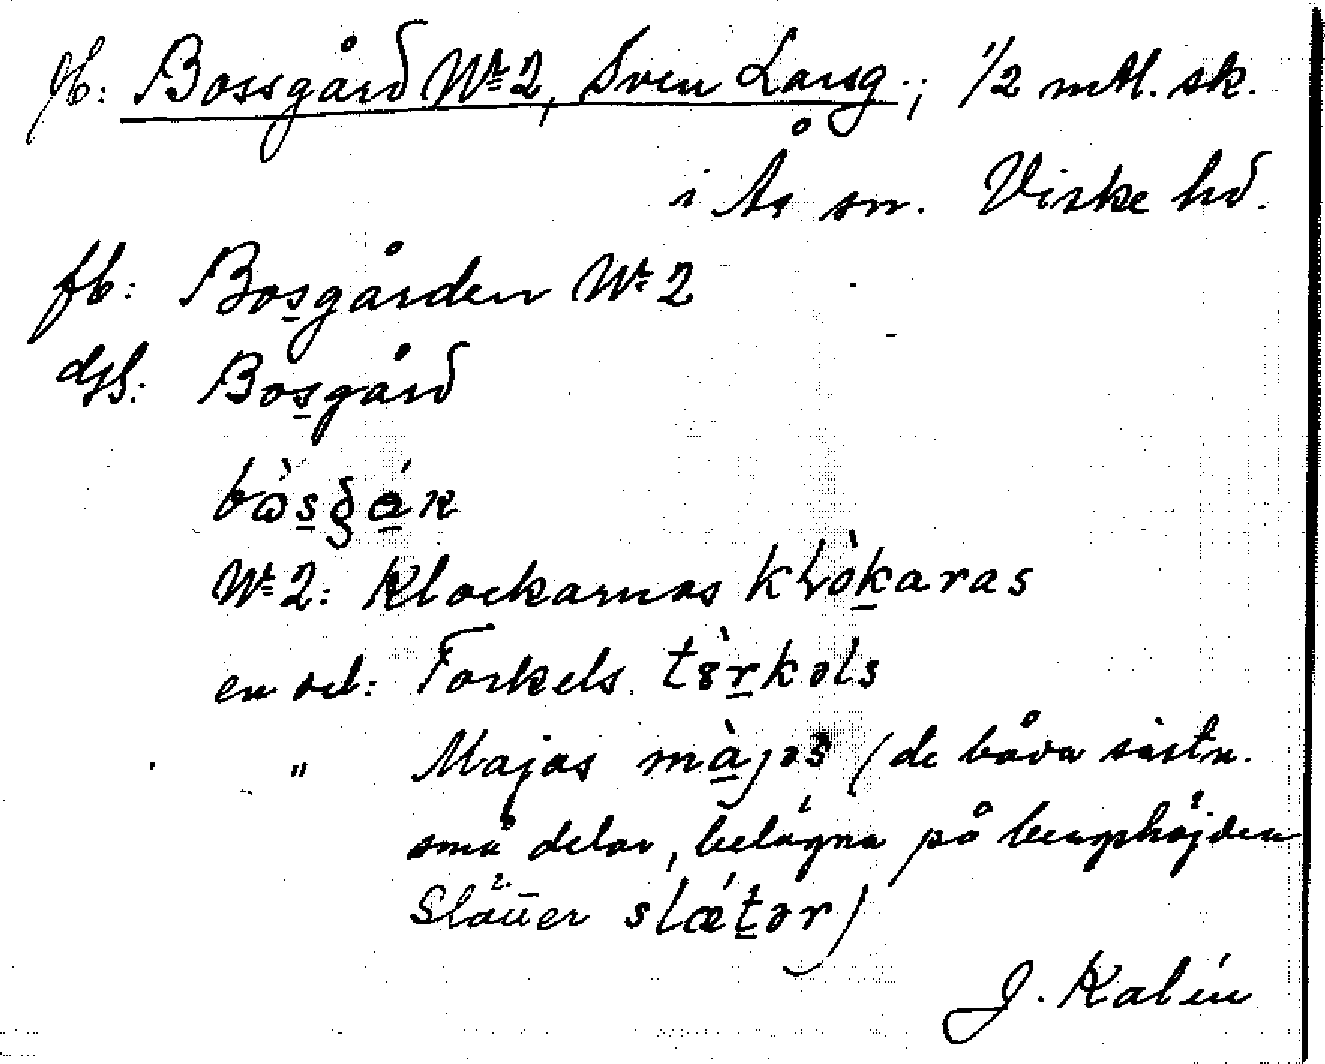 jb: Bossgård Nr 2, Sven Larsg.; 1/2 mtl. sk.
i Ås sn. Viske hd.
fb: Bosgården Nr 2
dsb: Bosgård
bòsgárn
Nr 2: Klockarnas klòkaras
en del: Torkels tòrkəls
" Majas màjəs (de båda sistn.
små delar, belägna på bergshöjden
Slätter slǽtər)
J. Kalén